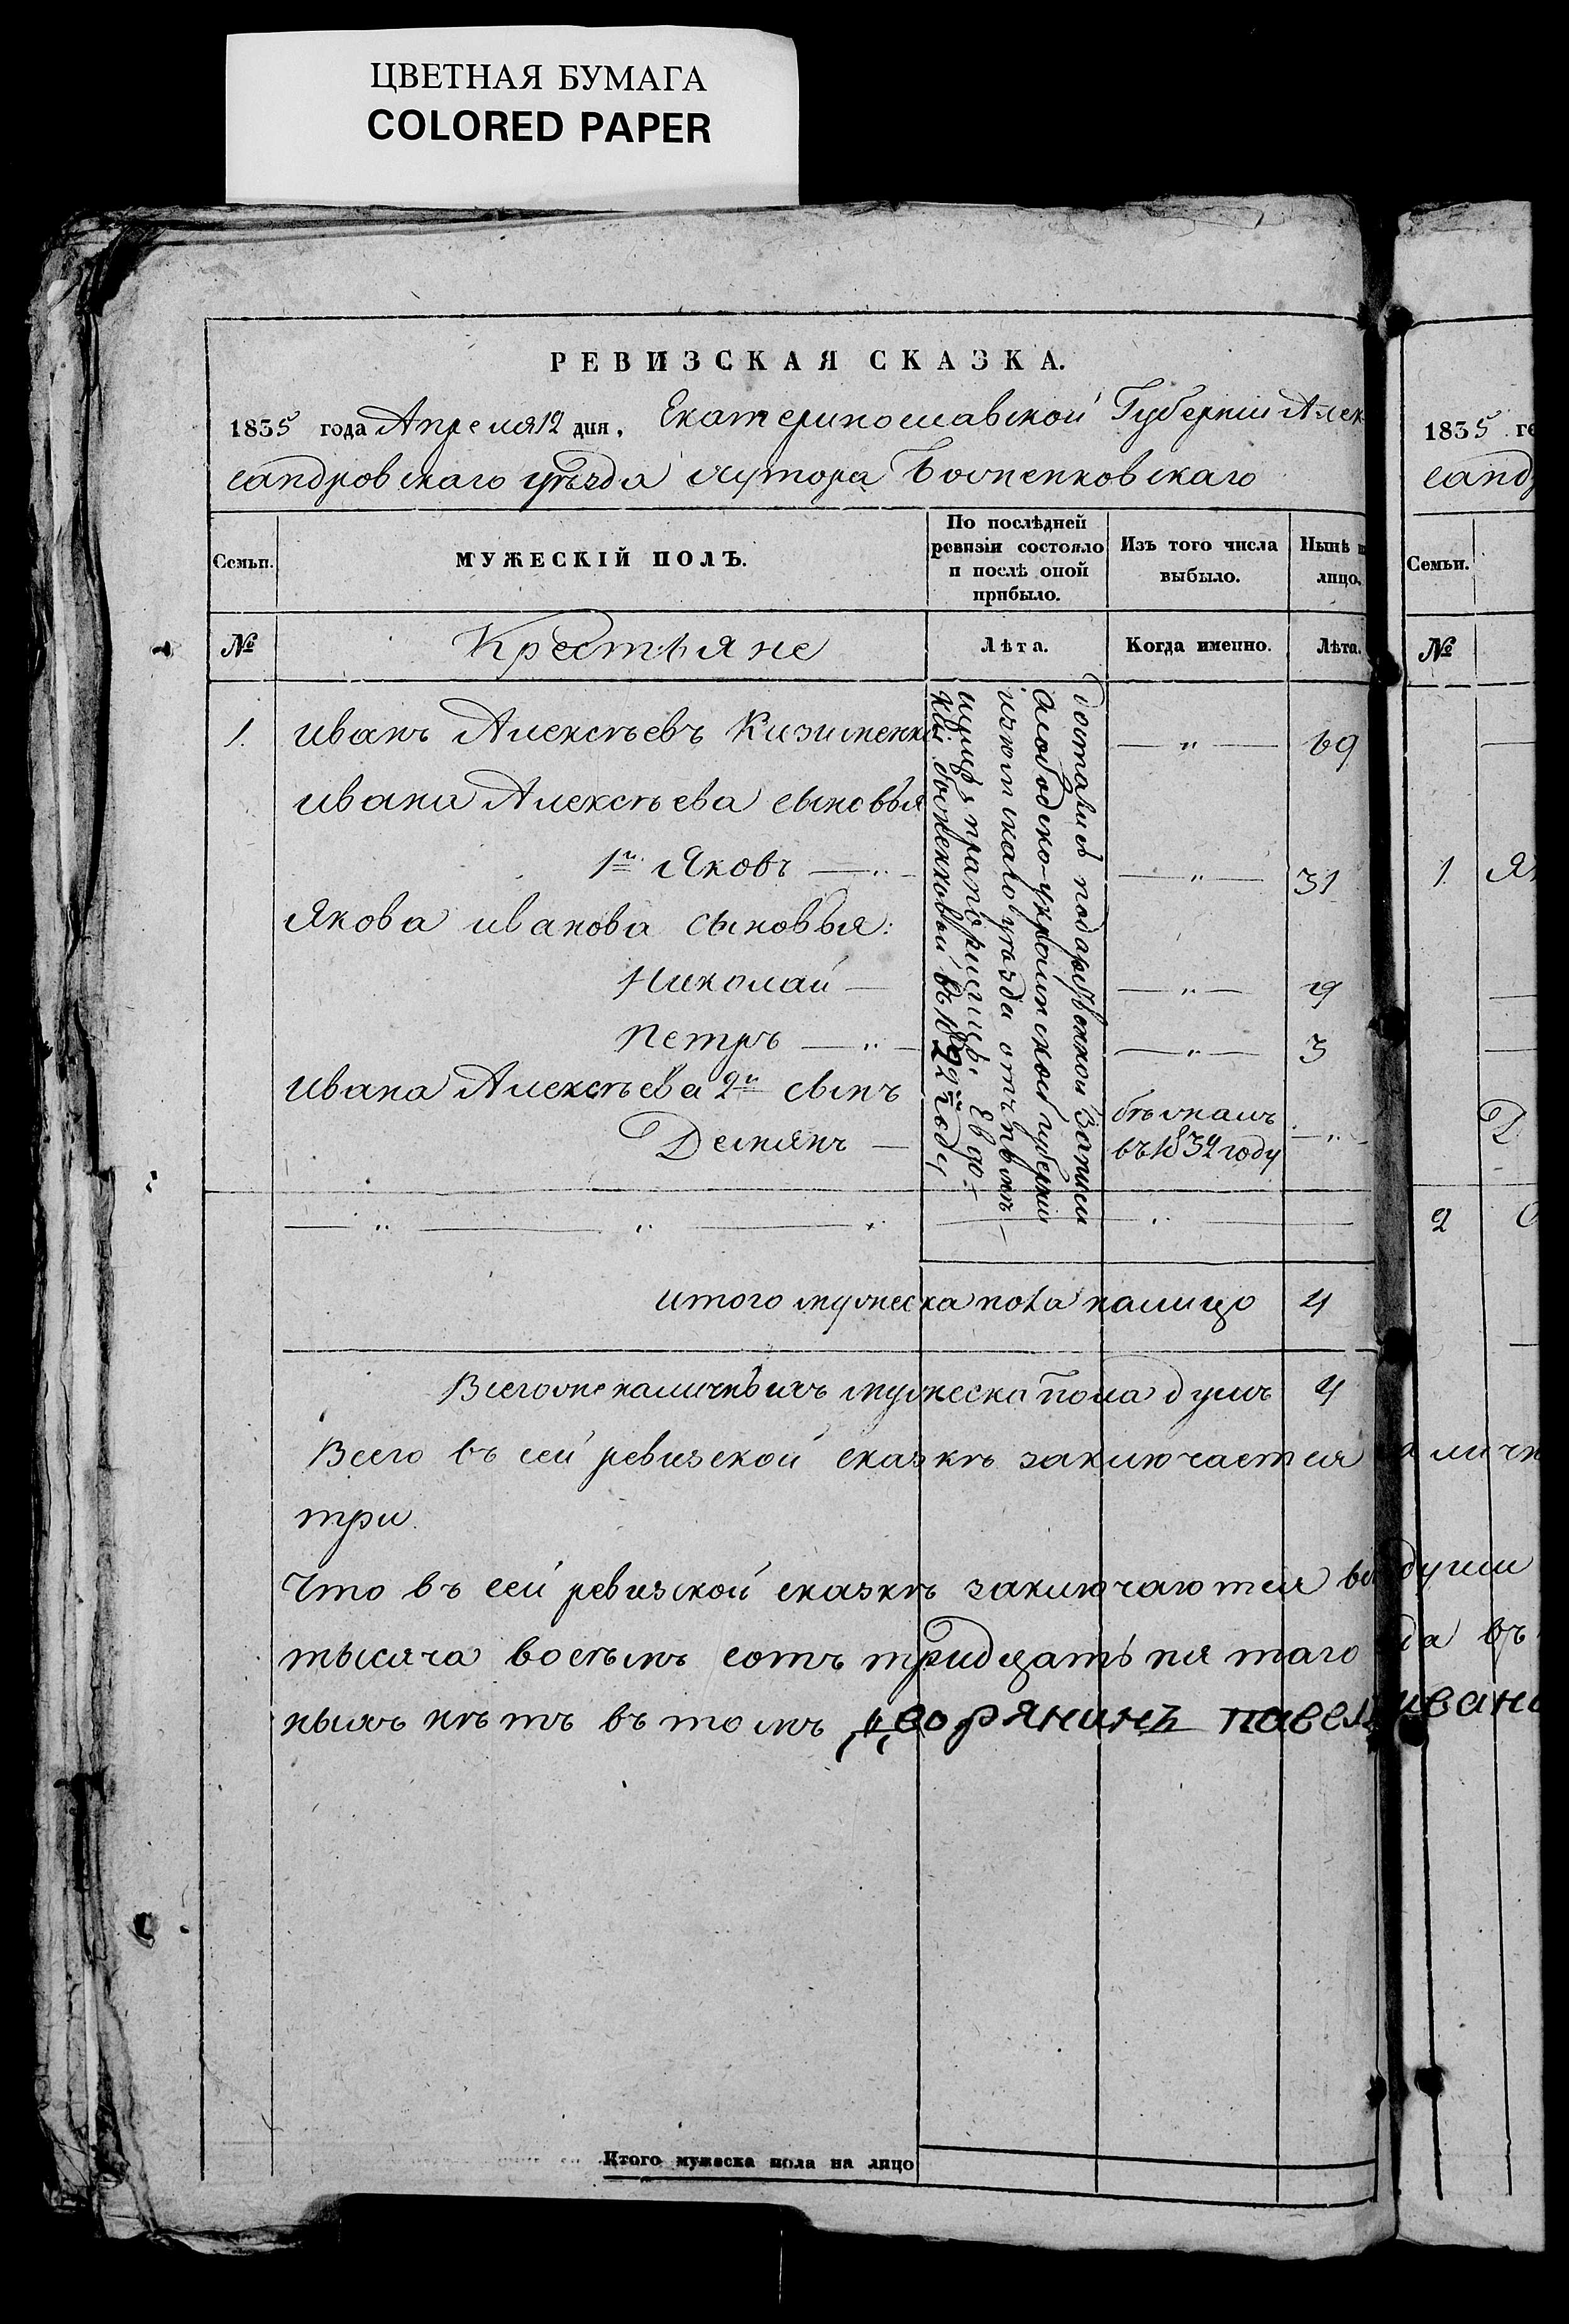 ЦВЕТНАЯ БУМАГА
COLORED PAPER
РЕВИЗСКАЯ СКАЗКА.
1835 года Апреля 12 дня, Екатеринославской Губерніи Алек
сандровскаго уѣзда хутора
Семьи.
МУЖЕСКІЙ ПОЛЪ.
По послѣдней ревизіи состояло и послѣ оной прибыло.
Изъ того числа выбыло.
Нынѣ
лицо.
№
Крестьяне
Лѣта.
Когда именно.
Лѣта.
1. иванъ Алексѣевъ — " — 69
ивана Алексѣева сыновья
1й Яковъ — " — — " — 31
Якова иванова сыновья:
Николай — — " — 9
Петръ — " — — " — 3
ивана Алексѣева 2й сынъ
Демянъ —
въ 1832 году — "
достался по дарственной записи
слободско-украинской губерніи
изюмскаго уѣзда отъ
прапорщицы Евдо-
въ 1822м году
итого мужеска пола налицо 4
Всего наличныхъ мужеска пола душъ 4
Всего въ сей ревизской сказкѣ заключается
три.
Что въ сей ревизской сказкѣ заключаются
тысяча восемь сотъ тридцать пятаго
ныхъ нѣтъ въ томъ дворянинъ павел
Итого мужеска пола на лицо
1835 го
санд
Семьи.
№
1. Як
Д
2
аличн
души
да въ
ивано